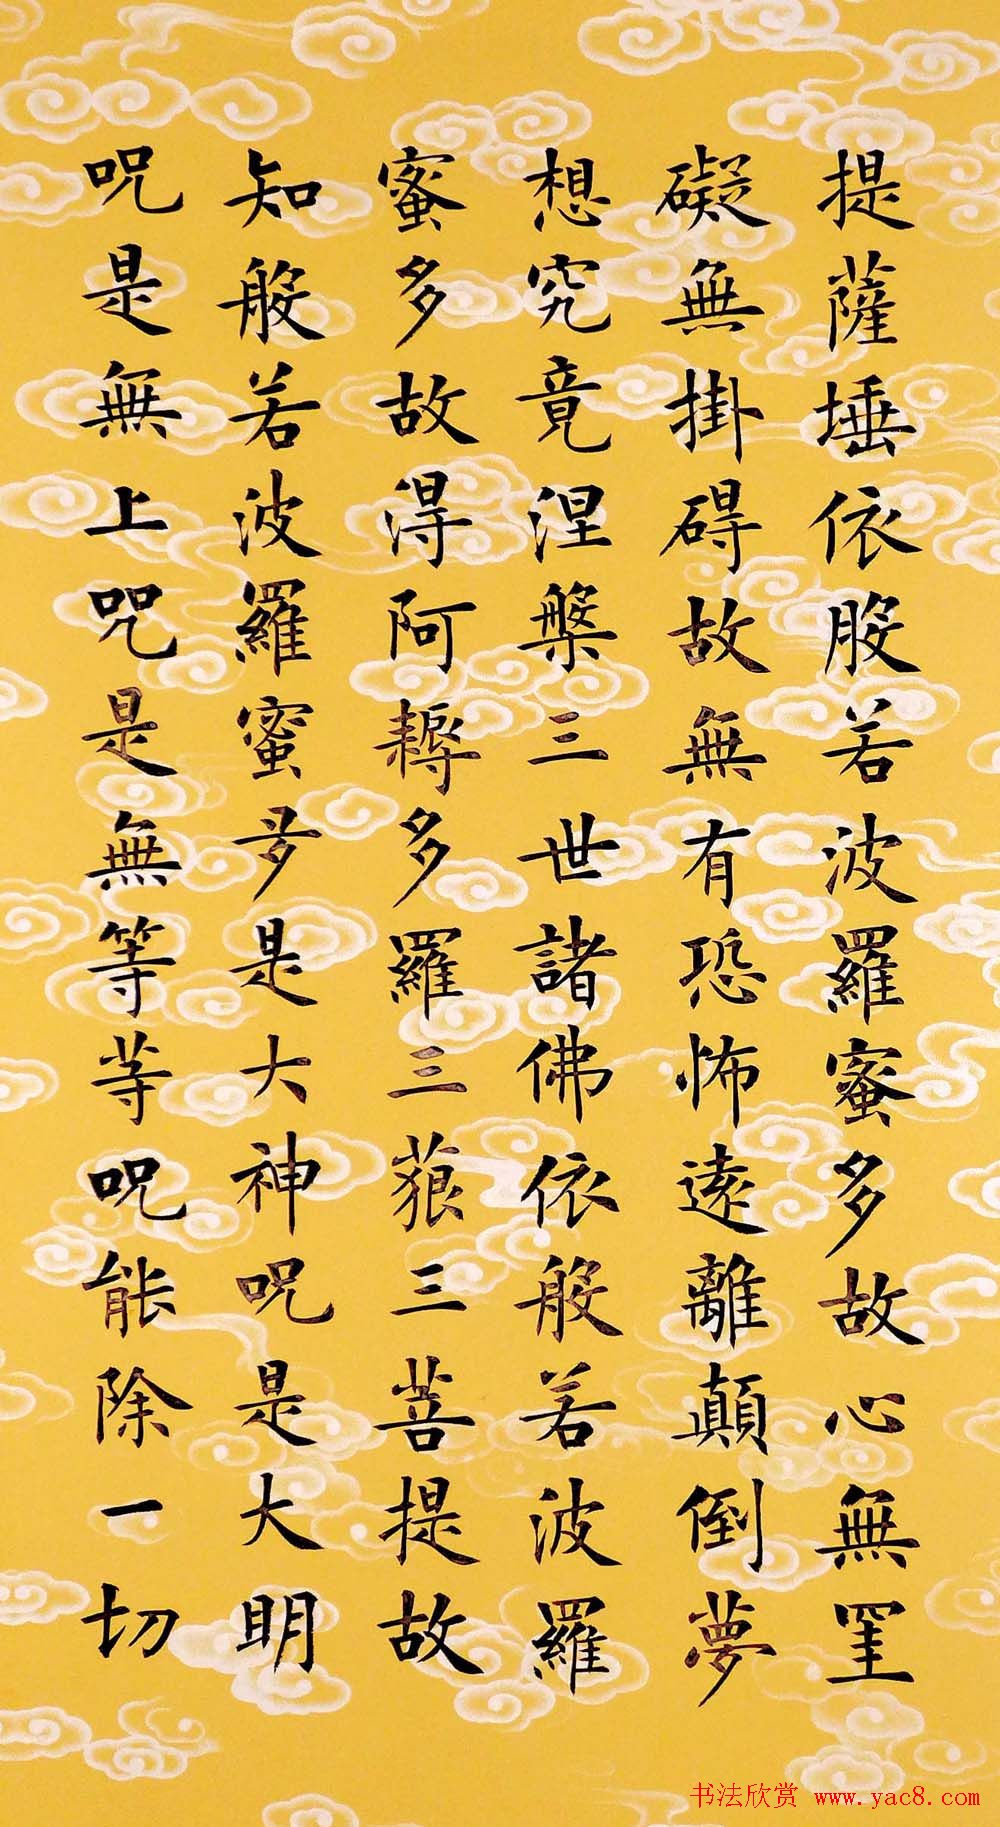 提薩埵依般若波羅蜜多故心無罣
礙無掛碍故無有恐怖遠離顛倒夢
想究竟涅槃三世諸佛依般若波羅
蜜多故得阿耨多羅三藐三菩提故
知般若波羅蜜多是大神咒是大明
咒是無上咒是無等等咒能除一切
书法欣赏 www.yac8.com